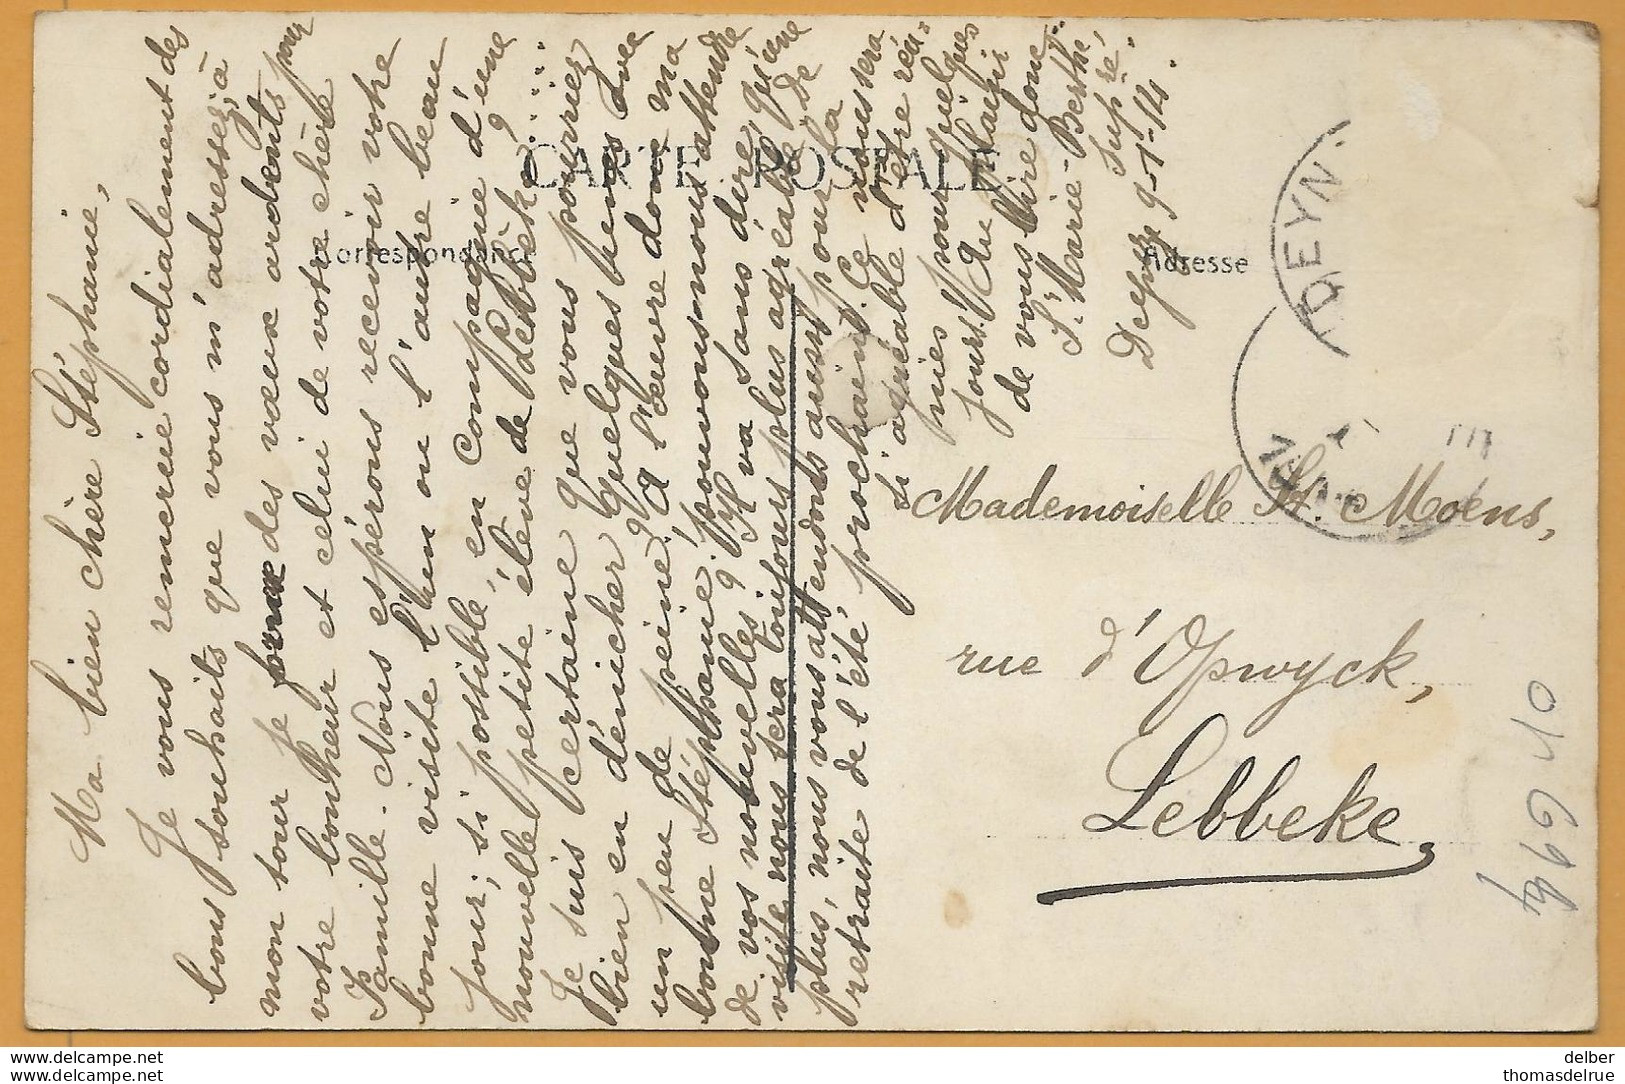 CARTE POSTALE
Correspondance
Adresse
Ma bien chère Stéphanie,
Je vous remercie cordialement des
bons souhaits que vous m'adressez; à
mon tour je forme des vœux ardents pour
votre bonheur et celui de votre chère
Famille. Nous espérons recevoir votre
bonne visite l'un ou l'autre beau
jour; si possible, en compagnie d'une
nouvelle petite élève de Lebbeke?.....
Je suis certaine que vous pourriez
bien en dénicher quelques unes avec
un peu de peine. A l'œuvre donc ma
bonne Stéphanie! pouvons nous attendre
de vos nouvelles? Il va sans dire, qu'une
visite nous sera toujours plus agréable. De
plus, nous vous attendons aussi pour la
retraite de l'été prochain. Ce nous sera
si agréable d'être réu-
nies pour quelques
jours! Au plaisir
de vous lire donc..
Sr. Marie-Berthe,
Supré.
9-1-14.
Mademoiselle St. Moens,
rue d'Opwyck,
Lebbeke
DEYN
6940
www.delcampe.net
www.delcampe.net
delber
thomasdelrue